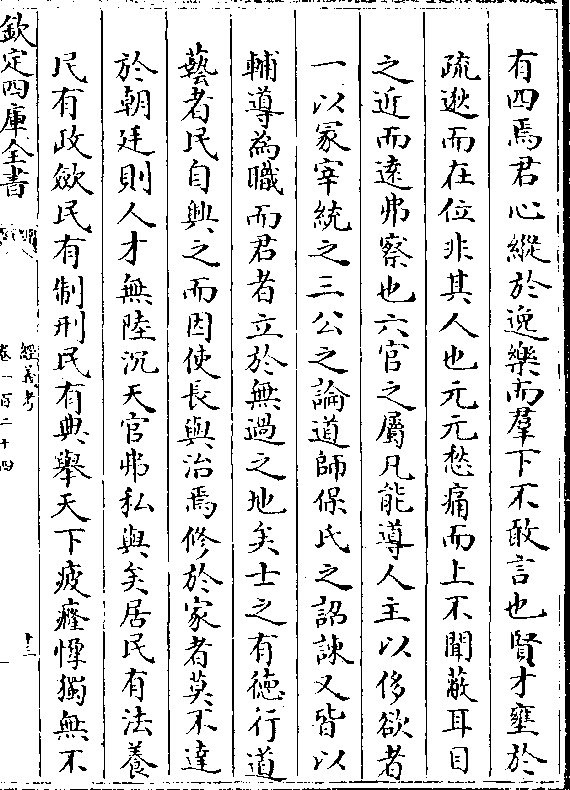 有四焉君心縱於逸樂而羣下不敢言也賢才壅於
疏逖而在位非其人也元元愁痛而上不聞蔽耳目
之近而遠弗察也六官之屬凡能導人主以侈欲者
一以冢宰統之三公之論道師保氏之詔諫又皆以
輔導為職而君者立於無過之地矣士之有德行道
藝者民自興之而因使長與治焉修於家者莫不達
於朝廷則人才無陸沉天官弗私與矣居民有法養
民有政斂民有制刑民有典舉天下疲癃惸獨無不
欽定四庫全書
經義考
卷一百二十四
十三